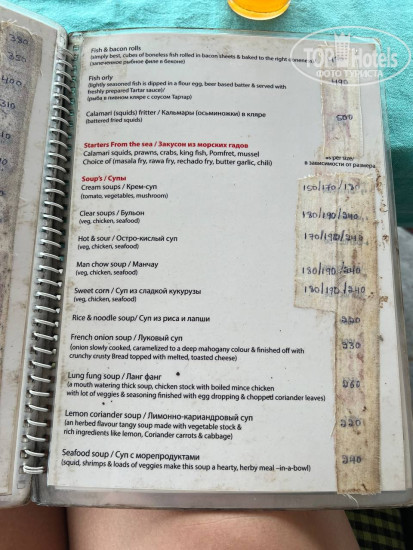 330
400
310
TOP Hotels
ФОТО ТУРИСТА
Fish & bacon rolls
(simply best, cubes of boneless fish rolled in bacon sheets & baked to the right
(запеченное рыбное филе в беконе)
Fish orly
(lightly seasoned fish is dipped in a flour egg, beer based batter & served with
freshly prepared Tartar sauce)/
(рыба в пивном кляре с соусом Тартар)
Calamari (squids) fritter / Кальмары (осьминожки) в кляре
(battered fried squids)
500
Starters From the sea / Закуски из морских гадов
Calamari squids, prawns, crabs, king fish, Pomfret, mussel
Choice of (masala fry, rawa fry, rechado fry, butter garlic, chili)
as per size/
в зависимости от размера
Soup's / Супы
Cream soups / Крем-суп
(tomato, vegetables, mushroom)
150/170/170
Clear soups / Бульон
(veg, chicken, seafood)
180/190/240
Hot & sour / Остро-кислый суп
(veg, chicken, seafood)
170/190/240
Man chow soup / Манчау
(veg, chicken, seafood)
180/190/240
Sweet corn / Суп из сладкой кукурузы
(veg, chicken, seafood)
180/190/240
Rice & noodle soup/ Суп из риса и лапши
220
French onion soup / Луковый суп
(onion slowly cooked, caramelized to a deep mahogany colour & finished off with
crunchy crusty Bread topped with melted, toasted cheese)
230
Lung fung soup / Ланг фанг
(a mouth watering thick soup, chicken stock with boiled mince chicken
with lot of veggies & seasoning finished with egg dropping & chopped coriander leaves)
260
Lemon coriander soup / Лимонно-кариандровый суп
(an herbed flavour tangy soup made with vegetable stock &
rich ingredients like lemon, Coriander carrots & cabbage)
220
Seafood soup / Суп с морепродуктами
(squid, shrimps & loads of veggies make this soup a hearty, herby meal –in-a-bowl)
240